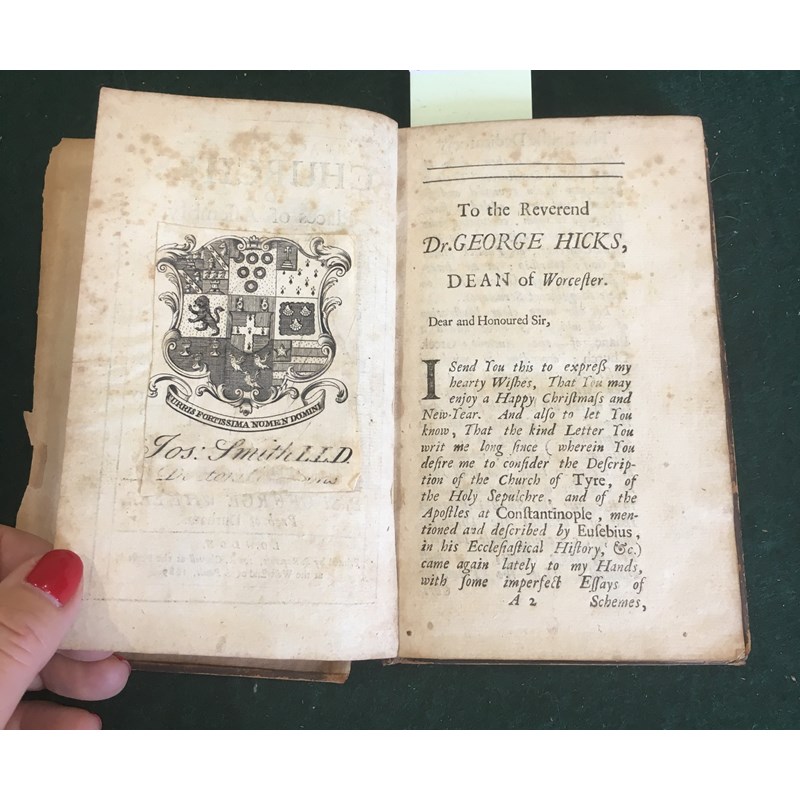 TURRIS FORTISSIMA NOMEN DOMINI
Jos: Smith LLD.
To the Reverend
Dr. GEORGE HICKS,
DEAN of Worceſter.
Dear and Honoured Sir,
I Send You this to expreſs my
hearty Wiſhes, That You may
enjoy a Happy Chriſtmaſs and
New-Year. And alſo to let You
know, That the kind Letter You
writ me long ſince (wherein You
deſire me to conſider the Deſcrip-
tion of the Church of Tyre, of
the Holy Sepulchre, and of the
Apoſtles at Conſtantinople, men-
tioned and deſcribed by Euſebius,
in his Eccleſiaſtical Hiſtory, &c.)
came again lately to my Hands,
with ſome imperfect Eſſays of
A 2 Schemes,